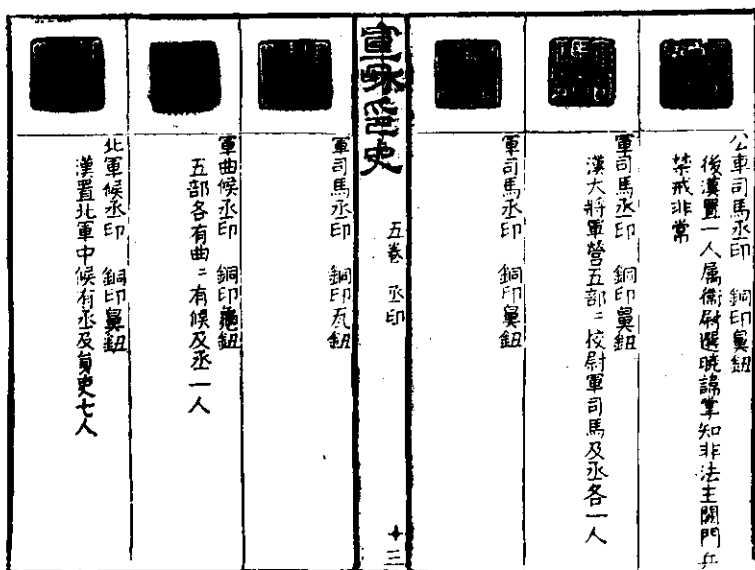 公車司馬丞印 銅印鼻鈕
後漢置一人屬衛尉選曉諱掌知非法主闕門兵
禁戒非常
軍司馬丞印 銅印鼻鈕
漢大將軍營五部〻校尉軍司馬及丞各一人
軍司馬丞印 銅印鼻鈕
宣和印史
五卷 丞印
十三
軍司馬丞印 銅印瓦鈕
軍曲候丞印 銅印龜鈕
五部各有曲〻有候及丞一人
北軍候丞印 銅印鼻鈕
漢置北軍中候有丞及員吏七人